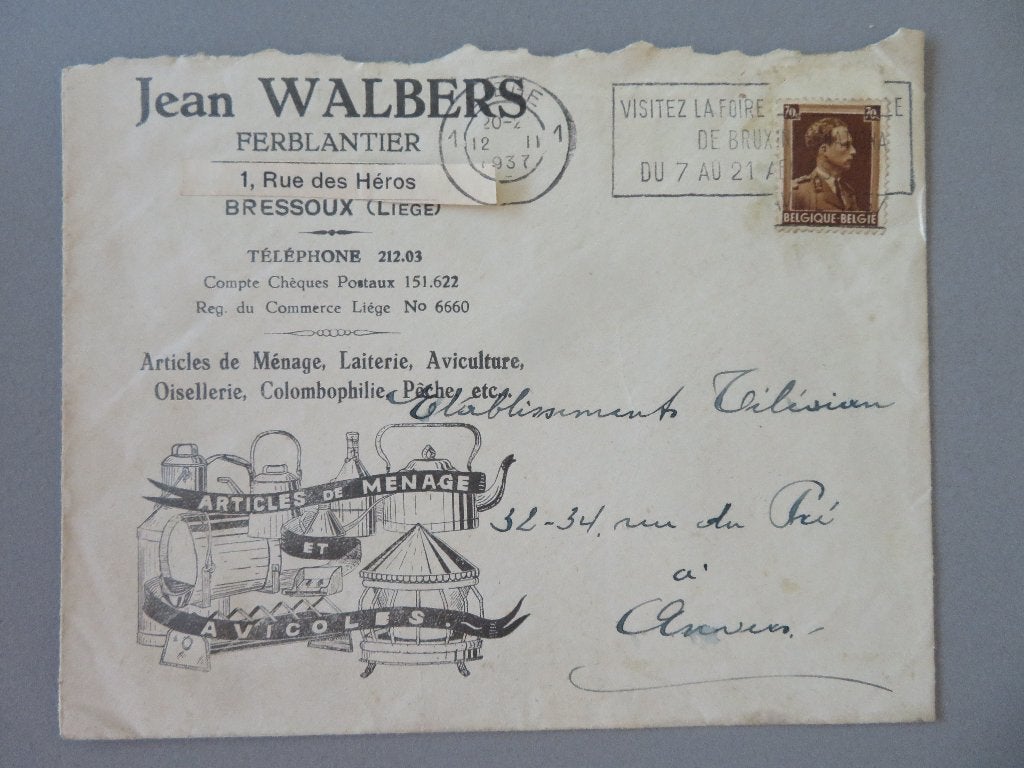 Jean WALBERS
FERBLANTIER
1, Rue des Héros
BRESSOUX (LIÉGE)
TÉLÉPHONE 212.03
Compte Chèques Postaux 151.622
Reg. du Commerce Liége No 6660
Articles de Ménage, Laiterie, Aviculture,
Oisellerie, Colombophilie, Pêche, etc...
ARTICLES DE MÉNAGE
ET
AVICOLES.
1 1
20-2
12 II
1937
VISITEZ LA FOIRE
DE BRUX
DU 7 AU 21 A
70c 70c
BELGIQUE-BELGIË
Etablissements Télésian
32-34, rue du Pré
à
Anvers.-